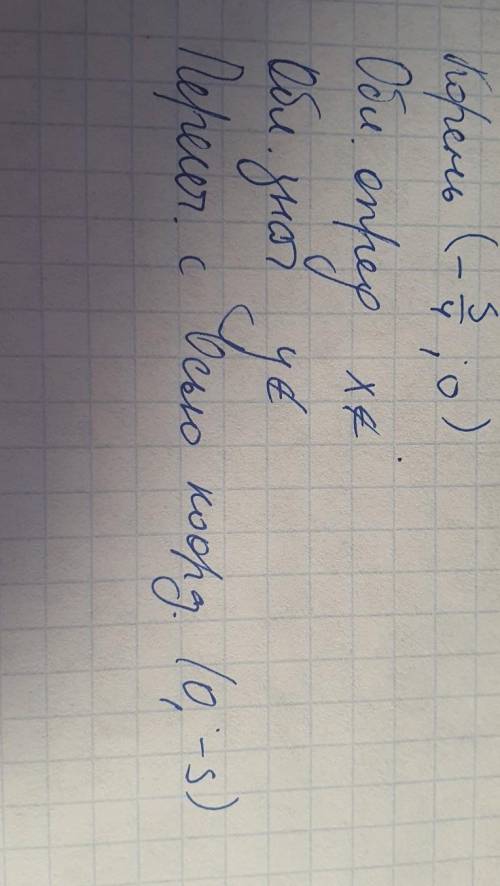 Корень (-5/4; 0)
Обл. опред x∈
Обл. знач y∈
Перес. с осью коорд. (0; -5)